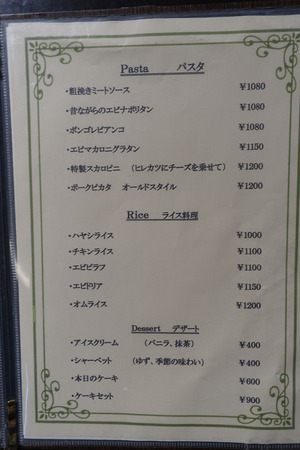 Pasta　パスタ
・粗挽きミートソース　¥1080
・昔ながらのエビナポリタン　¥1080
・ボンゴレビアンコ　¥1080
・エビマカロニグラタン　¥1150
・特製スカロピニ　（ヒレカツにチーズを乗せて）　¥1200
・ポークピカタ　オールドスタイル　¥1200
Rice　ライス料理
・ハヤシライス　¥1000
・チキンライス　¥1100
・エビピラフ　¥1100
・エビドリア　¥1150
・オムライス　¥1200
Dessert　デザート
・アイスクリーム　（バニラ、抹茶）　¥400
・シャーベット　（ゆず、季節の味わい）　¥400
・本日のケーキ　¥600
・ケーキセット　¥900